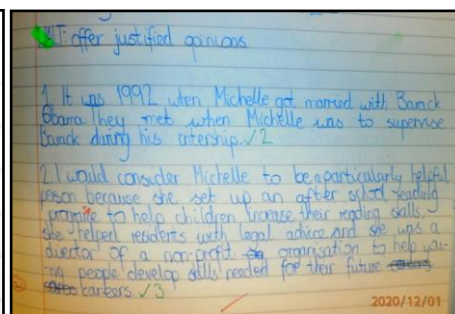 WALT: offer justified opinions
1. It was 1992 when Michelle got married with Barack
Obama. They met when Michelle was to supervise
Barack during his intership. ✓2
2. I would consider Michelle to be a particularly helpful
person because she set up an after school reading
to help children increase their reading skills.
she helped residents with legal advice and she was a
director of a non-profit organisation to help you-
ng people develop skills needed for their future
careers. ✓3
2020/12/01